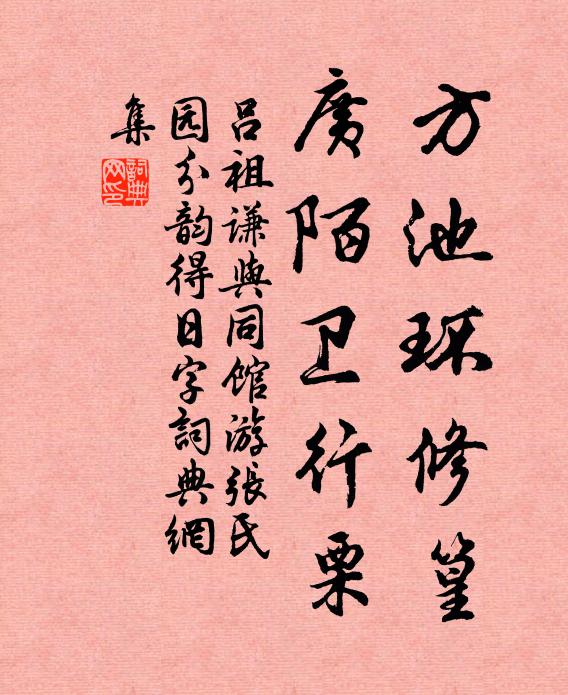 方池环修篁
廣陌卫行栗
吕祖谦與同馆游張氏
园分韵得日字詞典網
集
詞典网印